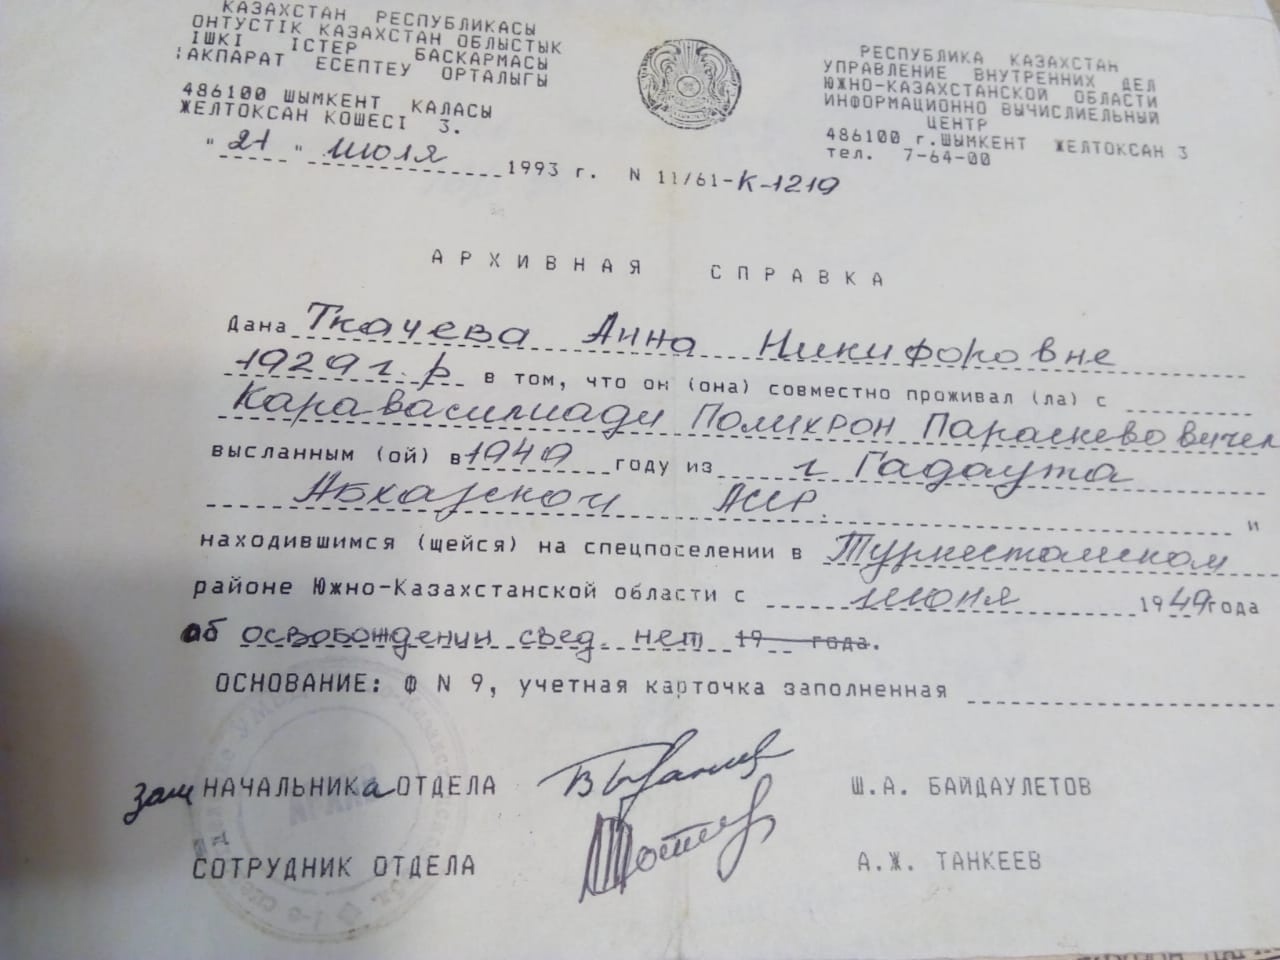 КАЗАХСТАН РЕСПУБЛИКАСЫ
ОНТУСТІК КАЗАХСТАН ОБЛЫСТЫК
ІШКІ ІСТЕР БАСКАРМАСЫ
АКПАРАТ ЕСЕПТЕУ ОРТАЛЫГЫ
486100 ШЫМКЕНТ КАЛАСЫ
ЖЕЛТОКСАН КОШЕСІ 3.
"21" июля 1993 г. N 11/61-К-1219
РЕСПУБЛИКА КАЗАХСТАН
УПРАВЛЕНИЕ ВНУТРЕННИХ ДЕЛ
ЮЖНО-КАЗАХСТАНСКОЙ ОБЛАСТИ
ИНФОРМАЦИОННО ВЫЧИСЛИЕЛЬНЫЙ
ЦЕНТР
486100 г.ШЫМКЕНТ ЖЕЛТОКСАН 3
тел. 7-64-00
АРХИВНАЯ СПРАВКА
Дана Ткачева Анна Никифоровне
1929 г.р в том, что он (она) совместно проживал (ла) с
Каравасилиади Поликрон Параскевовичем
высланным (ой) в 1949 году из г Гадаута
Абхазской АССР. и
находившимся (щейся) на спецпоселении в Туркестанском
районе Южно-Казахстанской области с июня 1949 года
об освобождении свед. нет 19 года.
ОСНОВАНИЕ: Ф N 9, учетная карточка заполненная
зам НАЧАЛЬНИКа ОТДЕЛА Ш.А. БАЙДАУЛЕТОВ
СОТРУДНИК ОТДЕЛА А.Ж. ТАНКЕЕВ
АРХИВ